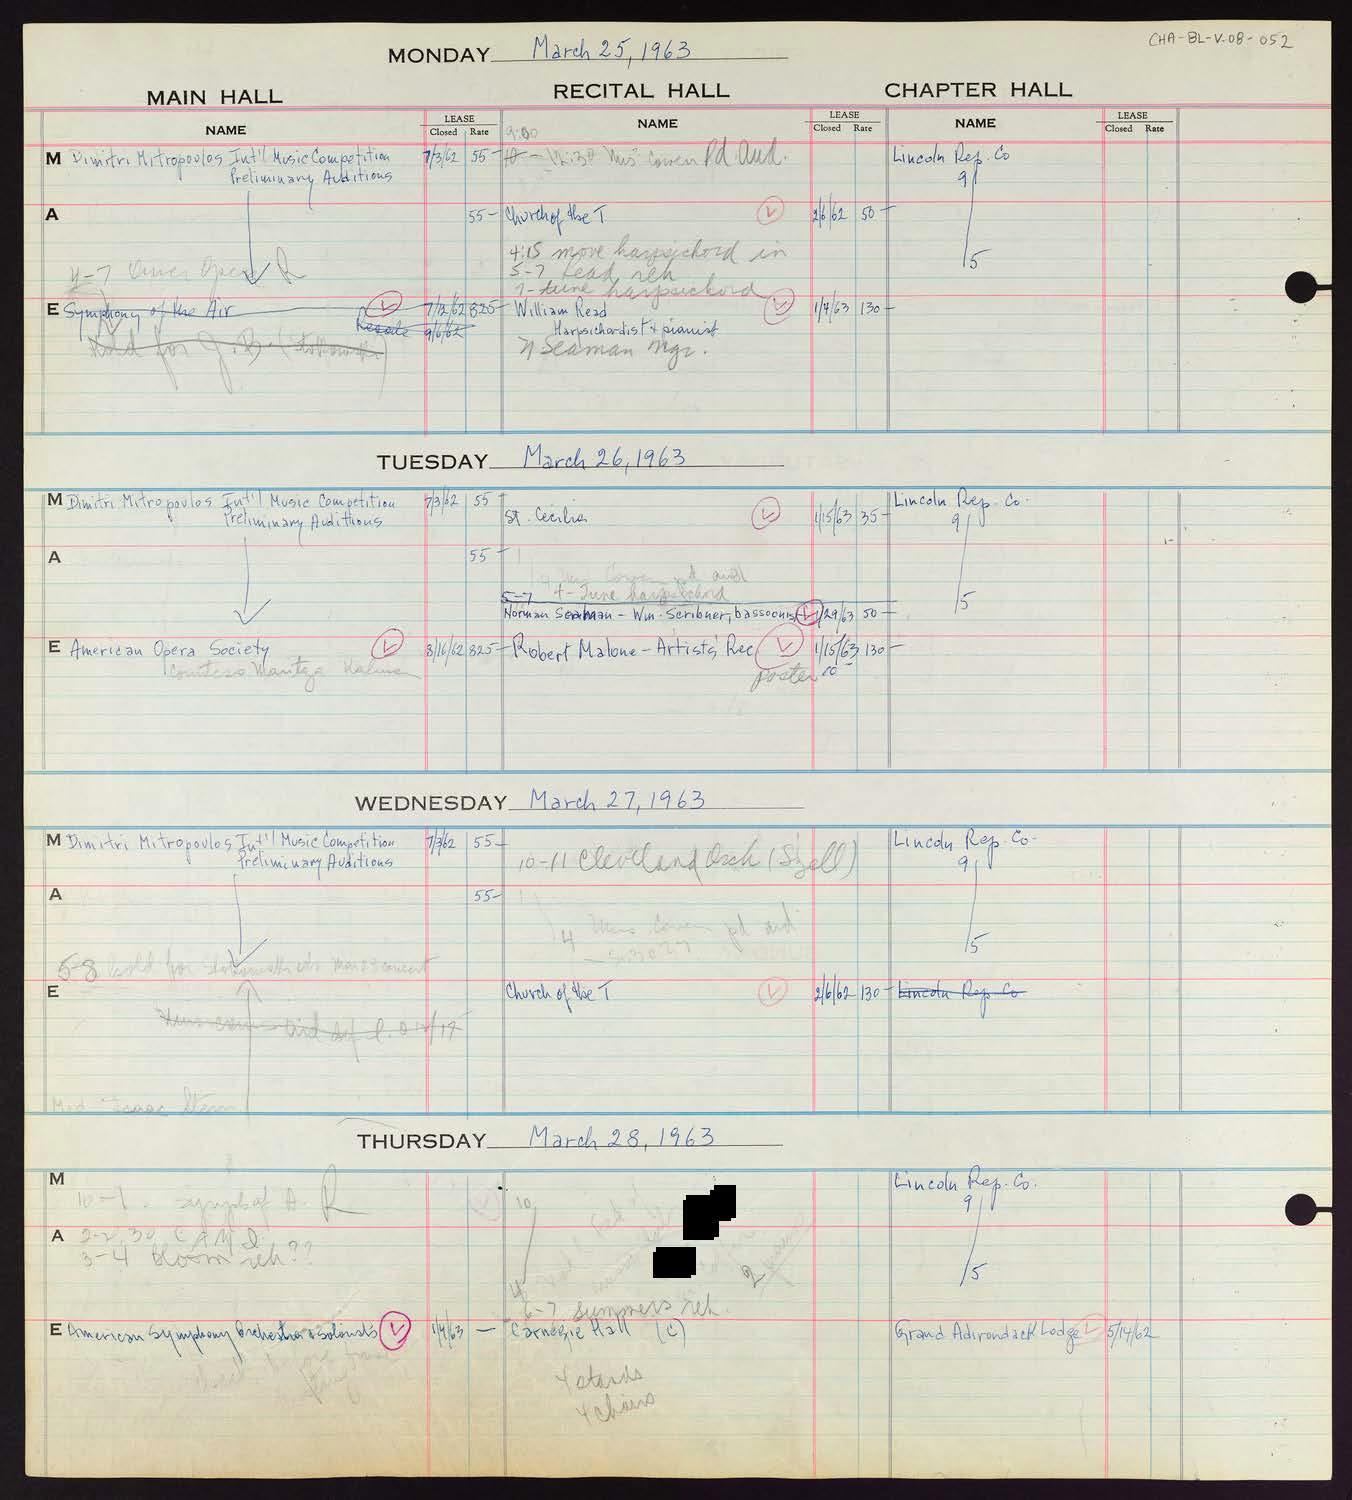 CHA-BL-V.08-052
MONDAY March 25, 1963
MAIN HALL RECITAL HALL CHAPTER HALL
NAME LEASE Closed Rate NAME LEASE Closed Rate NAME LEASE Closed Rate
9:00
M Dimitri Mitropoulos Int'l Music Competition 7/3/62 55- 10-12:30 Mrs Cowen Pd Aud. Lincoln Rep. Co
Preliminary Auditions 9
A 55- Church of the T 2/6/62 50-
4:15 move harpsichord in 5
4-7 Amer Opera R 5-7 Read reh
7- tune harpsichord
E Symphony of the Air 7/12/62 825- William Read 1/4/63 130-
9/6/62 Harpsichordist + pianist
Hold for J.B. Seaman Mgr.
TUESDAY March 26, 1963
M Dimitri Mitropoulos Int'l Music Competition 7/3/62 55 Lincoln Rep. Co.
Preliminary Auditions St. Cecilia 1/15/63 35- 9
A 55-
Mrs Cowen pd aud
5-7 4- Tune harpsichord 5
Norman Seaman - Wm. Scribner, bassoonist 1/29/63 50-
E American Opera Society 3/16/62 825- Robert Malone - Artists Rec 1/15/63 130-
poster
WEDNESDAY March 27, 1963
M Dimitri Mitropoulos Int'l Music Competition 7/3/62 55- Lincoln Rep. Co.
Preliminary Auditions 10-11 Cleveland Orch (Szell) 9
A 55-
4 Mrs Cowen pd aud 5
5-8 hold for
E Church of the T 2/6/62 130- Lincoln Rep. Co
Isaac Stern
THURSDAY March 28, 1963
M Lincoln Rep. Co.
10-1. Symph of A. R 10 9
A 2-2:30 CAMI
3-4 Bloom reh?? 4 5
6-7 summers reh.
E American Symphony Orchestra + soloists 1/4/63 - Carnegie Hall (C) Grand Adirondack Lodge 5/14/62
4 stands
4 chairs